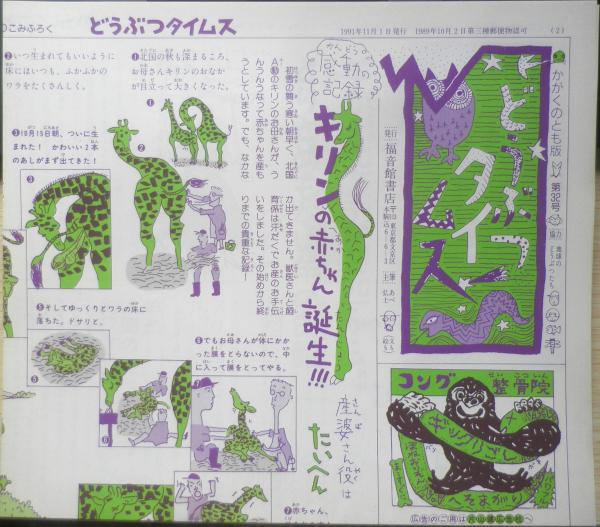 りこみふろく
どうぶつタイムス
1991年11月1日発行 1989年10月2日第三種郵便物認可 (2)
かがくのとも版
第32号
協力
地球の
どうぶつたち
どうぶつ
タイムス
発行
福音館書店
〒113 東京都文京区
本駒込6-6-3
主筆
あべ
弘士
感動
記録
キリンの赤ちゃん誕生!!!
産婆さん役は
たいへん
初雪の舞う寒い朝早く、北国
A動のキリンのお田さんが、う
んうんうなって赤ちゃんを産も
うとしています。でも、なかな
か出てきません。獣医さんと飼
育係は汗だくでお産のお手伝
いをしました。その始めから終
りまでの貴重な記録—
①北国の秋も深まるころ、
お母さんキリンのおなか
が目立って大きくなった。
②いつ生まれてもいいように
床にはいつも、ふかふかの
ワラをたくさんしく。
③10月15日朝、ついに生
まれた! かわいい2本
のあしがまず出てきた!
⑤そしてゆっくりとワラの床に
落ちた。ドサリと。
⑥でもお母さんが体にかか
った膜をとらないので、中
に入って膜をとってやる。
⑦赤ちゃん、
コング
整骨院
ギックリごし
へそまがり
広告のご用は片山健広告社へ